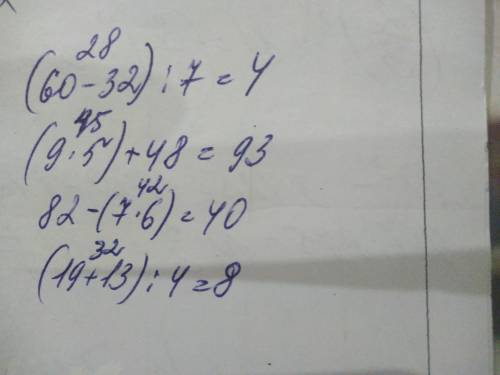 28
(60-32):7=4
45
(9·5)+48=93
42
82-(7·6)=40
32
(19+13):4=8